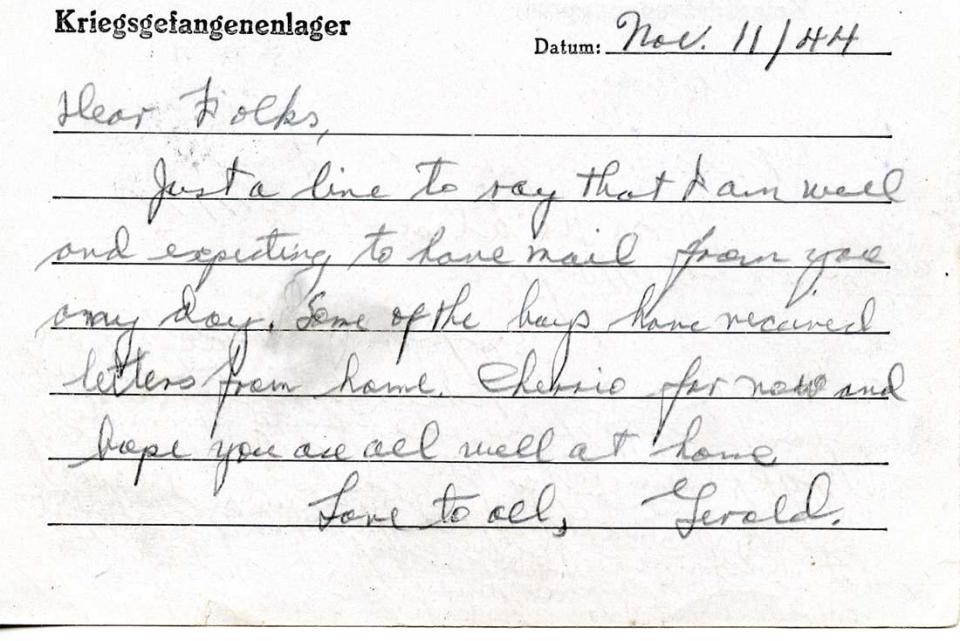 Kriegsgefangenenlager
Datum: Nov. 11/44
Dear Folks,
Just a line to say that I am well
and expecting to have mail from you
any day. Some of the boys have received
letters from home. Cherrio for now and
hope you are all well at home
Love to all, Gerald.